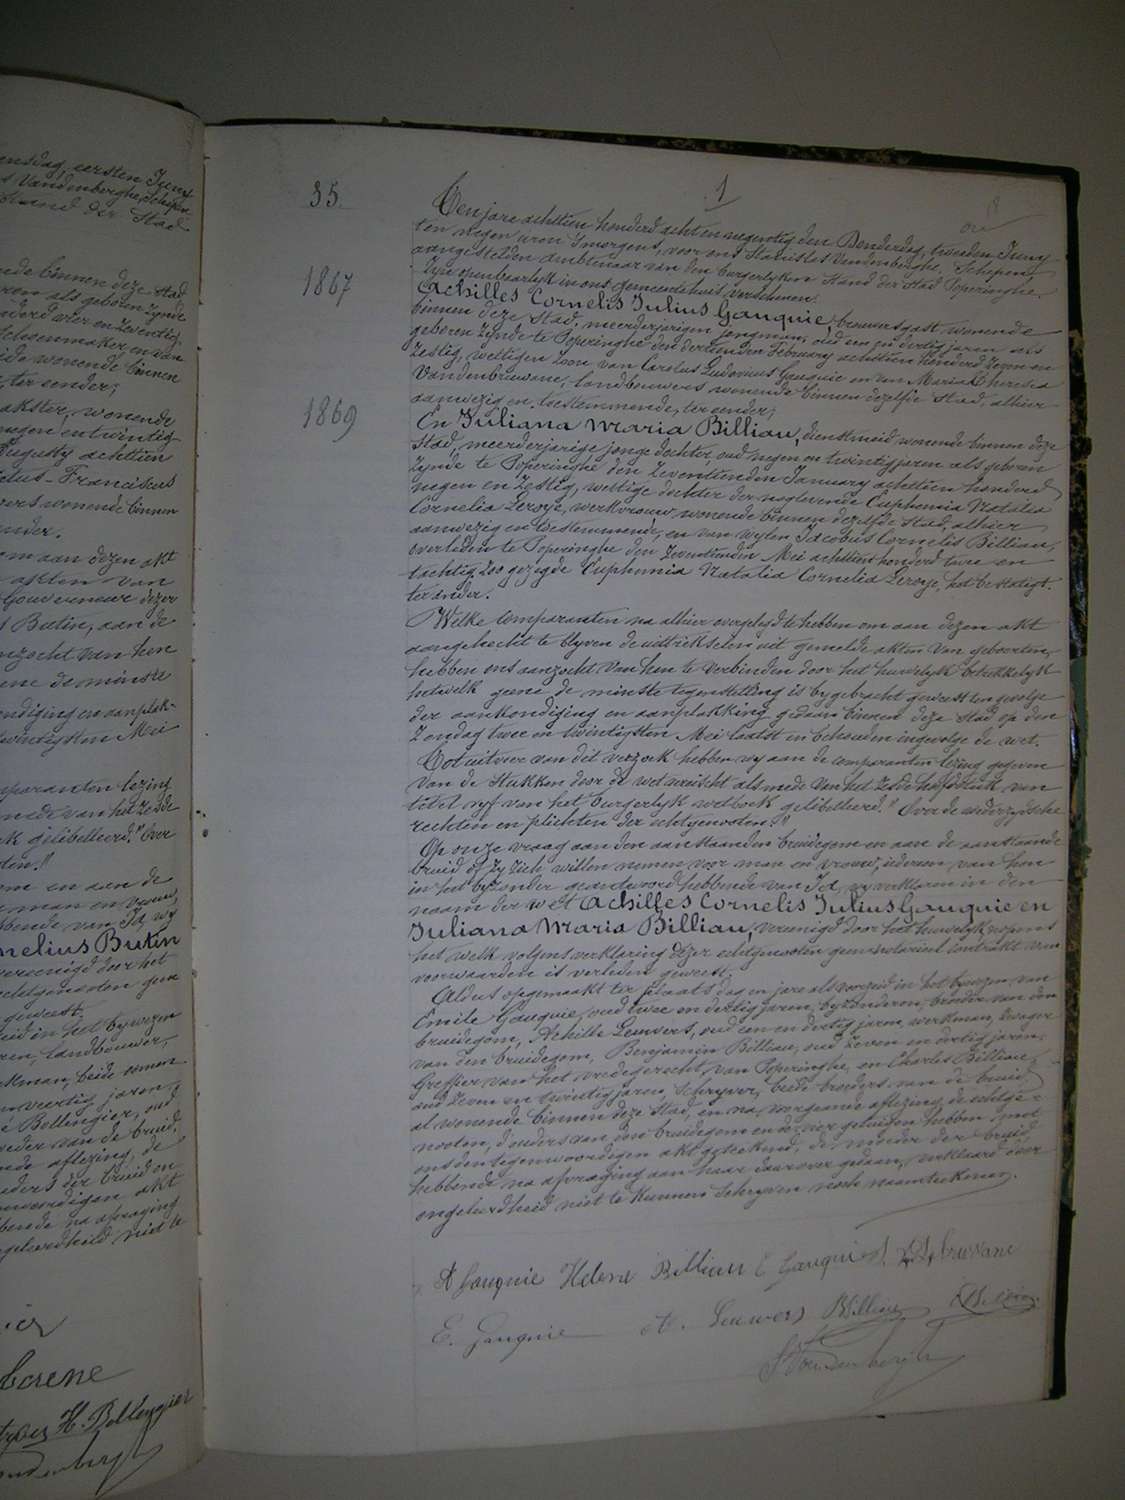 ensdag, eersten Juny
s Vandenberghe, Schepen
Stand der Stad
ende binnen deze Stad
ren als geboren zynde
nderd vier en Zeventig
Schoenmaker en van
ide wonende binnen
ter eender;
akster, wonende
negen en twintig
Augusty achttien
Franciscus
wers wonende binnen
ander.
om aan dezen akt
akten van
Gouverneur dezer
Butin, aan de
nzocht van hen
ene de minste
ndiging en aanplak-
twintigsten Mei
mparanten lezing
mede van het Zesde
k gelibelleerd: "Over
ten."
om en aan de
man en vrouw,
bbende van Ja, wy
nelius Butin
vereenigd door het
echtgenoten geen
geweest.
eid in het bywezen
ren, landbouwer,
kman, beide oomen
n veertig jaren,
e Bellengier, oud
oeder van de bruid,
nde aflezing, de
ders der bruid en
nwoordigen akt
bbende na afvraging
geleerdheid niet te
H. Bellengier
35.
1
Ten jare achttien honderd acht en negentig den Donderdag, tweeden Juny
ten negen uren 's morgens, voor ons Stanislas Vandenberghe, Schepen,
aangestelden ambtenaar van den burgerlyken Stand der Stad Poperinghe,
Zyn openbaarlyk in ons gemeentehuis verschenen:
1867
Achilles Cornelis Julius Gauquie, brouwersgast, wonende
binnen deze Stad, meerderjarigen jongman, oud een en dertig jaren als
geboren zynde te Poperinghe den dertienden February achttien honderd Zeven en
Zestig, wettigen Zoon van Carolus Ludovicus Gauquie en van Maria Theresia
Vandenbruwane, landbouwers wonende binnen dezelfde Stad, alhier
aanwezig en toestemmende, ter eender;
1869
En Juliana Maria Billiau, dienstmeid wonende binnen deze
Stad, meerderjarige jonge dochter, oud negen en twintig jaren als geboren
Zynde te Poperinghe den Zeventienden January achttien honderd
negen en Zestig, wettige dochter der naglevende Euphemia Natalia
Cornelia Leroye, werkvrouw, wonende binnen dezelfde Stad, alhier
aanwezig en toestemmende, en van wylen Jacobus Cornelis Billiau,
overleden te Poperinghe den Zeventienden Mei achttien honderd twee en
tachtig, Zoo gezegde Euphemia Natalia Cornelia Leroye, het bestatigt.
ter ander.
Welke comparanten na alhier overgelegd te hebben om aan dezen akt
aangehecht te blyven de uittrekselen uit gemelde akten van geboorten,
hebben ons aanzocht van hen te verbinden door het huwelyk betrekkelyk
hetwelk geene de minste tegenstelling is bygebracht geweest ten gevolge
der aankondiging en aanplakking gedaan binnen deze Stad op den
Zondag twee en twintigsten Mei laatst en behouden ingevolge de wet.
Tot uitvoer van dit verzoek hebben wy aan de comparanten lezing gegeven
van de Stukken door de wet vereischt als mede van het Zesde hoofdstuk van
titel vyf van het burgerlyk wetboek gelibelleerd: "Over de wederzydsche
rechten en plichten der echtgenooten."
Op onze vraag aan den aanstaanden bruidegom en aan de aanstaande
bruid of Zy Zich willen nemen voor man en vrouw, iedereen van hen
in het byzonder geantwoord hebbende van Ja, wy verklaren in den
naam der wet Achilles Cornelis Julius Gauquie en
Juliana Maria Billiau, vereenigd door het huwelyk nopens
het welk volgens verklaring dezer echtgenooten geen notarieel contrakt van
voorwaarden is verleden geweest.
Aldus opgemaakt ter plaats, dag en jare als voorzeid in het bywezen van
Emile Gauquie, oud twee en dertig jaren, byzonderen, broeder van den
bruidegom, Achille Leuwers, oud een en dertig jaren, werkman, zwager
van den bruidegom, Benjamin Billiau, oud Zeven en dertig jaren,
Greffier van het vredegerecht van Poperinghe, en Charles Billiau,
oud Zeven en twintig jaren, Schryver, beide broeders van de bruid,
al wonende binnen deze Stad, en na voorgaande aflezing, de echtge-
nooten, d'ouders van den bruidegom en de vier getuigen hebben met
ons den tegenwoordigen akt geteekend, de moeder der bruid
hebbende na afvraging aan haar daarover gedaan, verklaard door
ongeleerdheid niet te kunnen Schryven noch naamteekenen.
A Gauquie Helene Billiau C Gauquie
E. Gauquie A. Leuwers B Billiau
S Vandenberghe